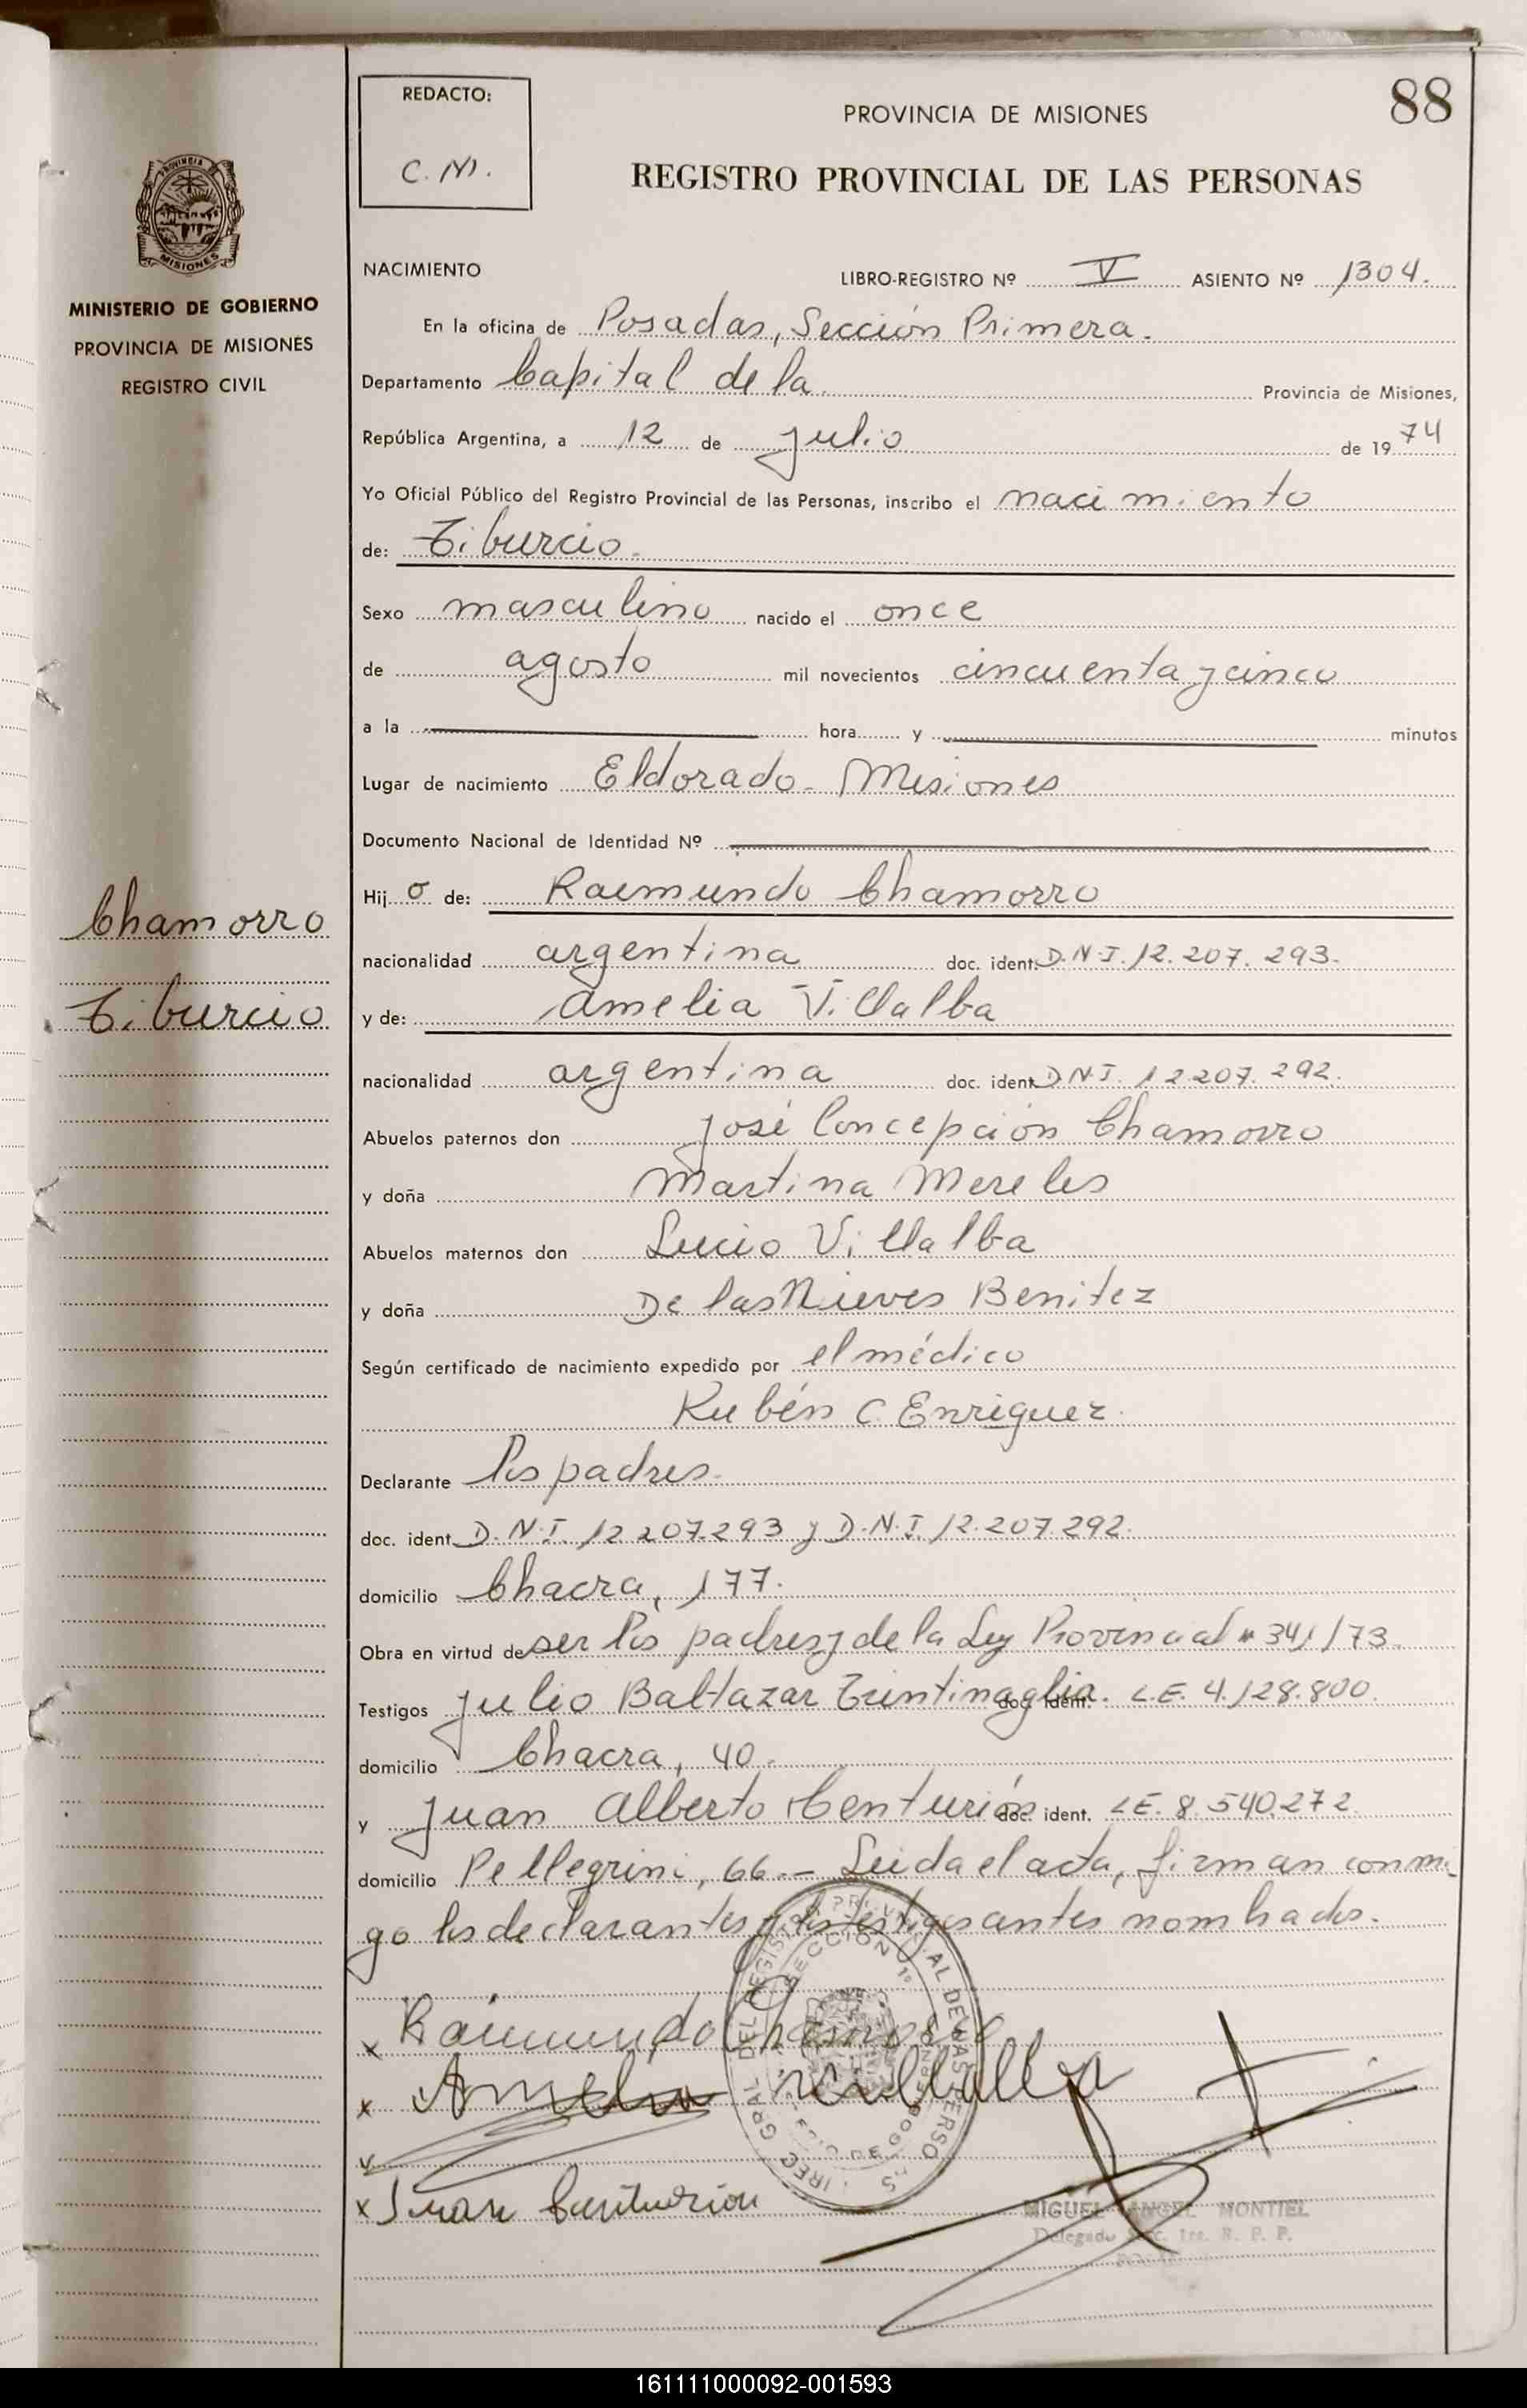 88
REDACTO:
C. M.
PROVINCIA DE MISIONES
REGISTRO PROVINCIAL DE LAS PERSONAS
PROVINCIA
MISIONES
MINISTERIO DE GOBIERNO
PROVINCIA DE MISIONES
REGISTRO CIVIL
NACIMIENTO
LIBRO-REGISTRO Nº V ASIENTO Nº 1304.
En la oficina de Posadas, Sección Primera.
Departamento Capital de la Provincia de Misiones,
República Argentina, a 12 de julio de 1974
Yo Oficial Público del Registro Provincial de las Personas, inscribo el nacimiento
de: Tiburcio.
Sexo masculino nacido el once
de agosto mil novecientos cincuenta y cinco
a la hora y minutos
Lugar de nacimiento Eldorado - Misiones
Documento Nacional de Identidad Nº
Hijo de: Raimundo Chamorro
Chamorro
nacionalidad argentina doc. ident. D.N.I. 12.207.293.
Tiburcio
y de: Amelia Villalba
nacionalidad argentina doc. ident. D.N.I. 12.207.292.
Abuelos paternos don José Concepción Chamorro
y doña Martina Mereles
Abuelos maternos don Lucio Villalba
y doña De las Nieves Benitez
Según certificado de nacimiento expedido por el médico
Rubén C. Enriquez.
Declarante los padres.
doc. ident. D.N.I. 12.207.293 y D.N.I. 12.207.292.
domicilio Chacra, 177.
Obra en virtud de ser los padres y de la Ley Provincial 341/73.
Testigos Julio Baltazar Trintinaglia. doc. ident. L.E. 4.128.800.
domicilio Chacra, 40.
y Juan Alberto Centurión doc. ident. L.E. 8.540.272.
domicilio Pellegrini, 66.- Leida el acta, firman conmi-
go los declarantes y los testigos antes nombrados.
x Raimundo Chamorro
x Amelia Villalba
x Juan Centurion
MIGUEL ANGEL MONTIEL
Delegado Sec. 1ra. R. P. P.
161111000092-001593